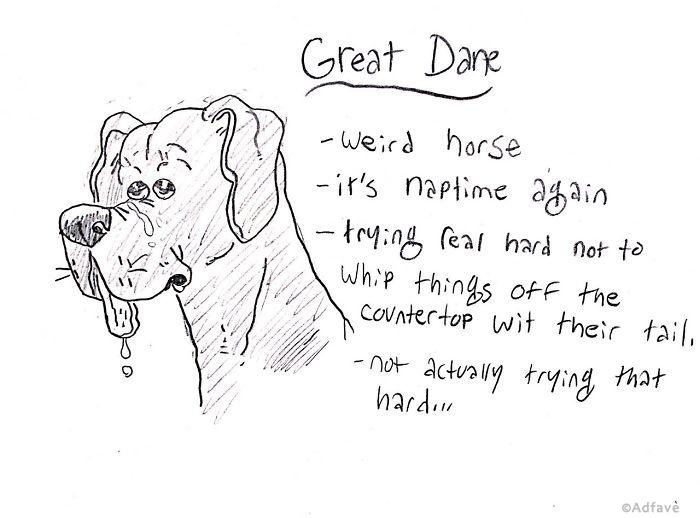 Great Dane
-weird horse
-it's naptime again
-trying real hard not to
whip things off the
countertop wit their tail.
-not actually trying that
hard...
©Adfavè